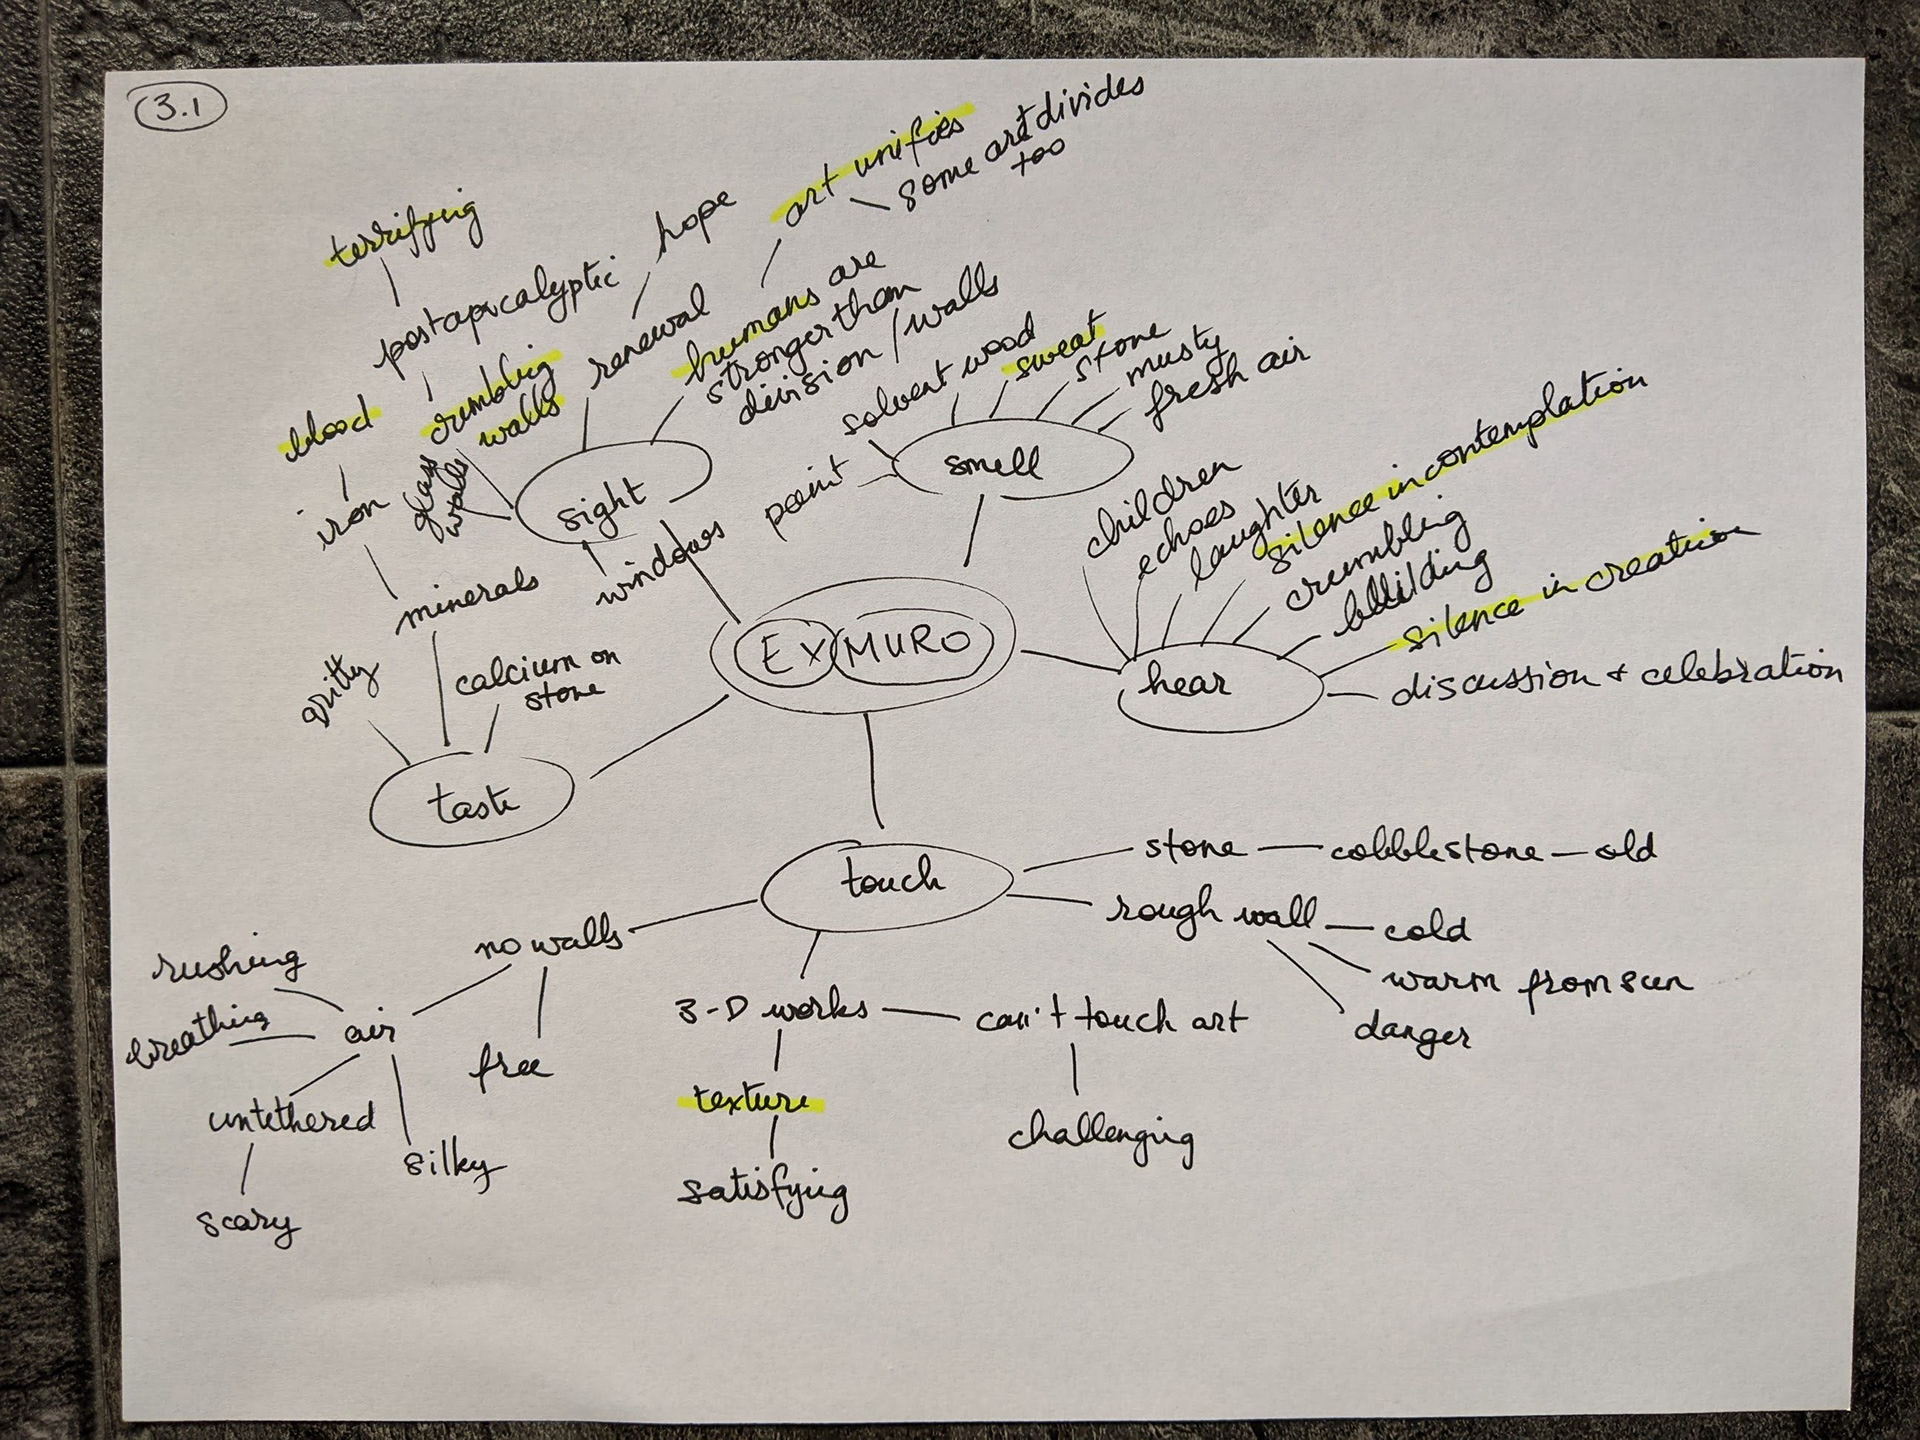 3.1
terrifying
postapocalyptic
hope
art unifies
some art divides
too
blood
crumbling
walls
renewal
humans are
stronger than
division / walls
iron
glass
walls
sight
minerals
windows
gritty
calcium on
stone
taste
paint
solvent
wood
sweat
stone
musty
fresh air
smell
EX MURO
children
echoes
laughter
silence in contemplation
crumbling
building
silence in creation
discussion + celebration
hear
touch
stone
cobblestone
old
rough wall
cold
warm from sun
danger
no walls
rushing
breathing
air
free
untethered
silky
scary
3-D works
can't touch art
texture
challenging
satisfying